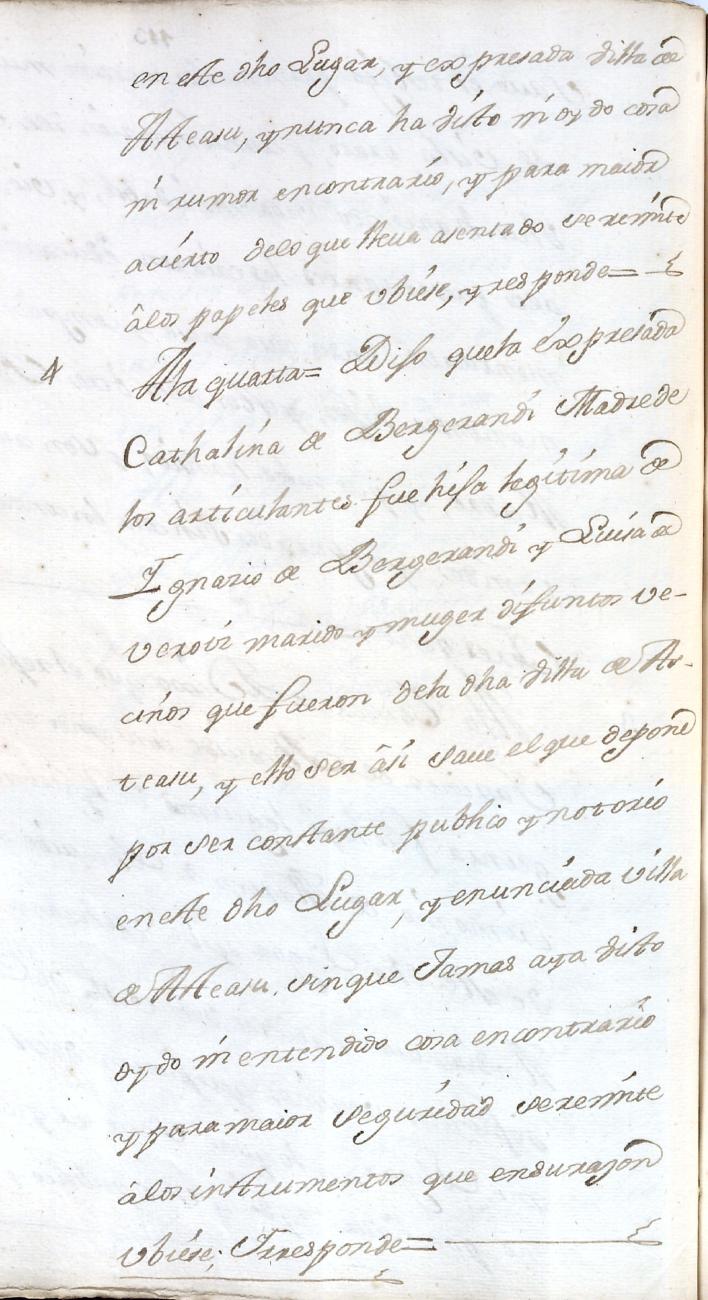 en este dho Lugar, y expresada villa de
Asteasu, y nunca ha visto ni oydo cosa
ni rumor encontrario, y para maior
acierto delo que lleva asentado se remite
âlos papeles que ubiese, y responde=
4 Ala quarta= Dijo quela expresada
Cathalina de Bergerandi Madre de
los articulantes fue hija legitima de
Ignazio de Bergerandi y Luisa de
Verovi marido y muger difuntos ve-
cinos que fueron dela dha villa de As-
teasu, y ello ser âsi save el que depone
por ser constante publico y notorio
en este dho Lugar, y enunciada villa
de Asteasu, sin que Jamas aya visto
oydo ni entendido cosa encontrario
y para maior seguridad se remite
alos instrumentos que en su razon
ubiese; Yresponde=